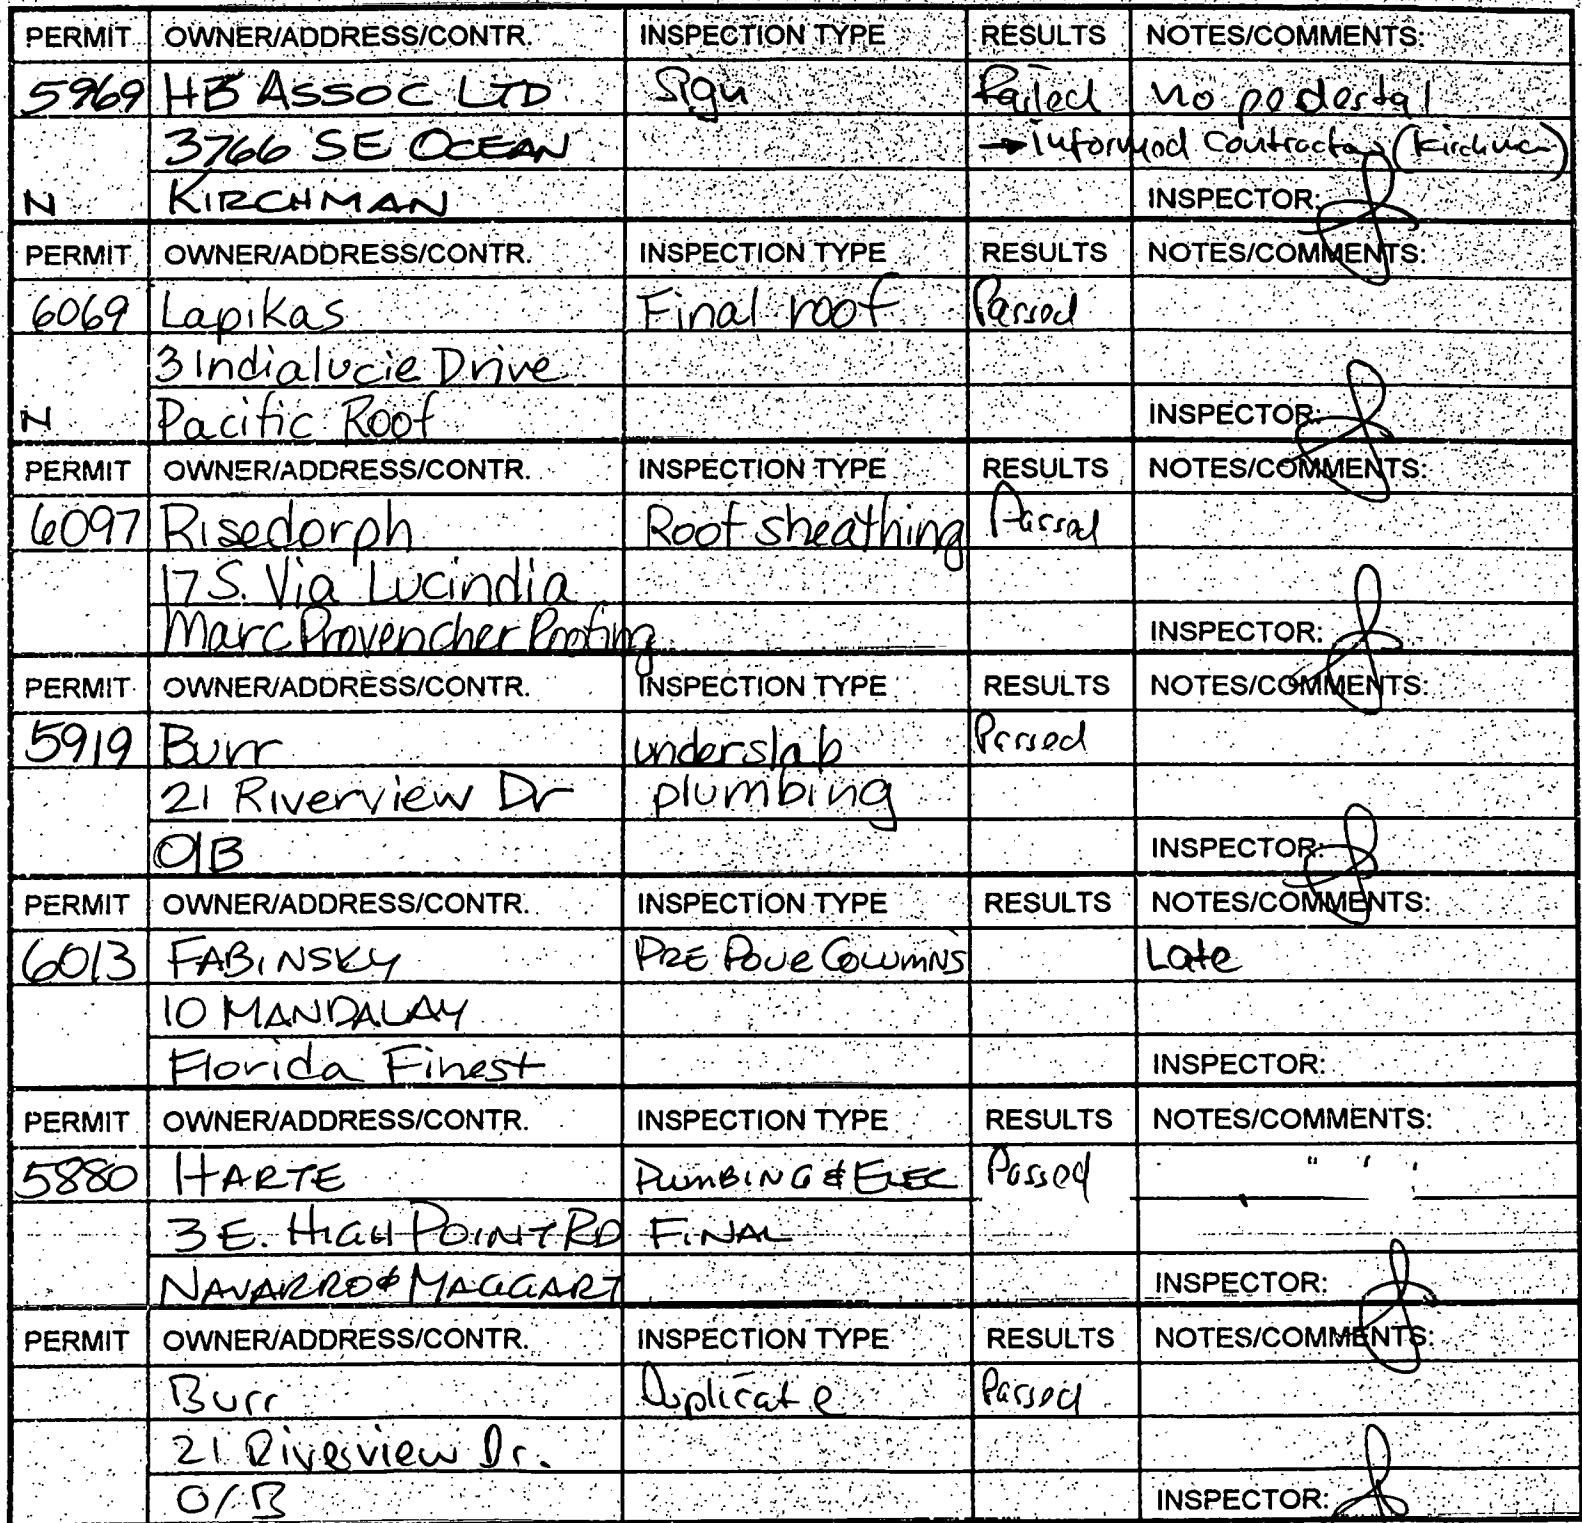 PERMIT OWNER/ADDRESS/CONTR. INSPECTION TYPE RESULTS NOTES/COMMENTS:
5969 HB ASSOC LTD Sign Failed no pedestal
3766 SE OCEAN → Informed Contractor (Kirchman)
N KIRCHMAN INSPECTOR:
PERMIT OWNER/ADDRESS/CONTR. INSPECTION TYPE RESULTS NOTES/COMMENTS:
6069 Lapikas Final roof Passed
3 Indialucie Drive
N Pacific Roof INSPECTOR:
PERMIT OWNER/ADDRESS/CONTR. INSPECTION TYPE RESULTS NOTES/COMMENTS:
6097 Risedorph Roof sheathing Passed
17 S. Via Lucindia
Marc Provencher Roofing INSPECTOR:
PERMIT OWNER/ADDRESS/CONTR. INSPECTION TYPE RESULTS NOTES/COMMENTS:
5919 Burr underslab Passed
21 Riverview Dr plumbing
O/B INSPECTOR:
PERMIT OWNER/ADDRESS/CONTR. INSPECTION TYPE RESULTS NOTES/COMMENTS:
6013 FABINSKY PRE POUR COLUMNS Late
10 MANDALAY
Florida Finest INSPECTOR:
PERMIT OWNER/ADDRESS/CONTR. INSPECTION TYPE RESULTS NOTES/COMMENTS:
5880 HARTE PLUMBING & ELEC Passed
3 E. HIGH POINT RD FINAL
NAVARRO & MAGGART INSPECTOR:
PERMIT OWNER/ADDRESS/CONTR. INSPECTION TYPE RESULTS NOTES/COMMENTS:
Burr Duplicate Passed
21 Riverview Dr.
O/B INSPECTOR: